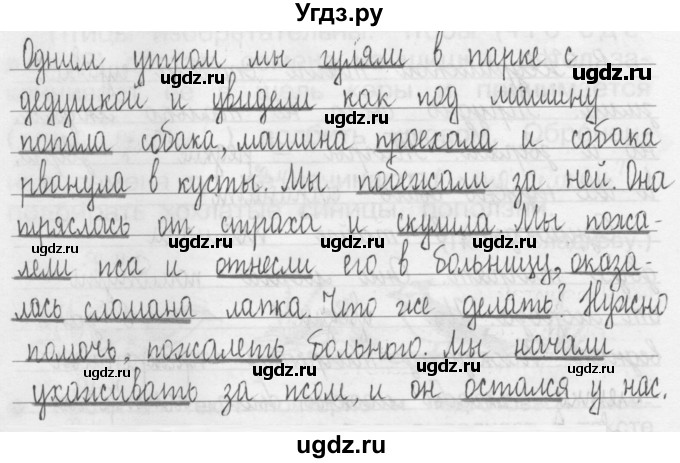 Угдз.ру
Одним утром мы гуляли в парке с
дедушкой и увидели как под машину
попала собака, машина проехала и собака
рванула в кусты. Мы побежали за ней. Она
тряслась от страха и скулила. Мы пожа-
лели пса и отнесли его в больницу, оказа-
лась сломана лапка. Что же делать? Нужно
помочь, пожалеть больного. Мы начали
ухаживать за псом, и он остался у нас.
ugdz.ru